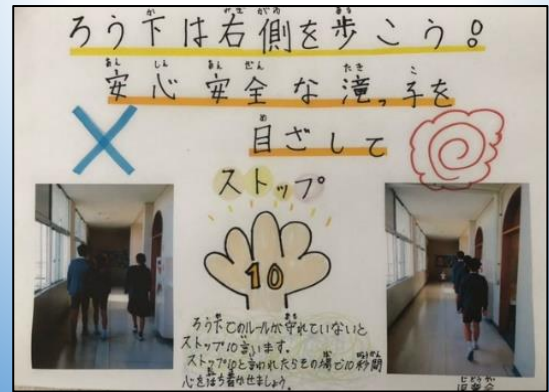 ろう下は右側を歩こう!
安心安全な滝っ子を
目ざして
ストップ
10
ろう下でのルールが守れていないと
ストップ10言います。
ストップ10と言われたらその場で10秒間
心を落ち着かせましょう。
児童会